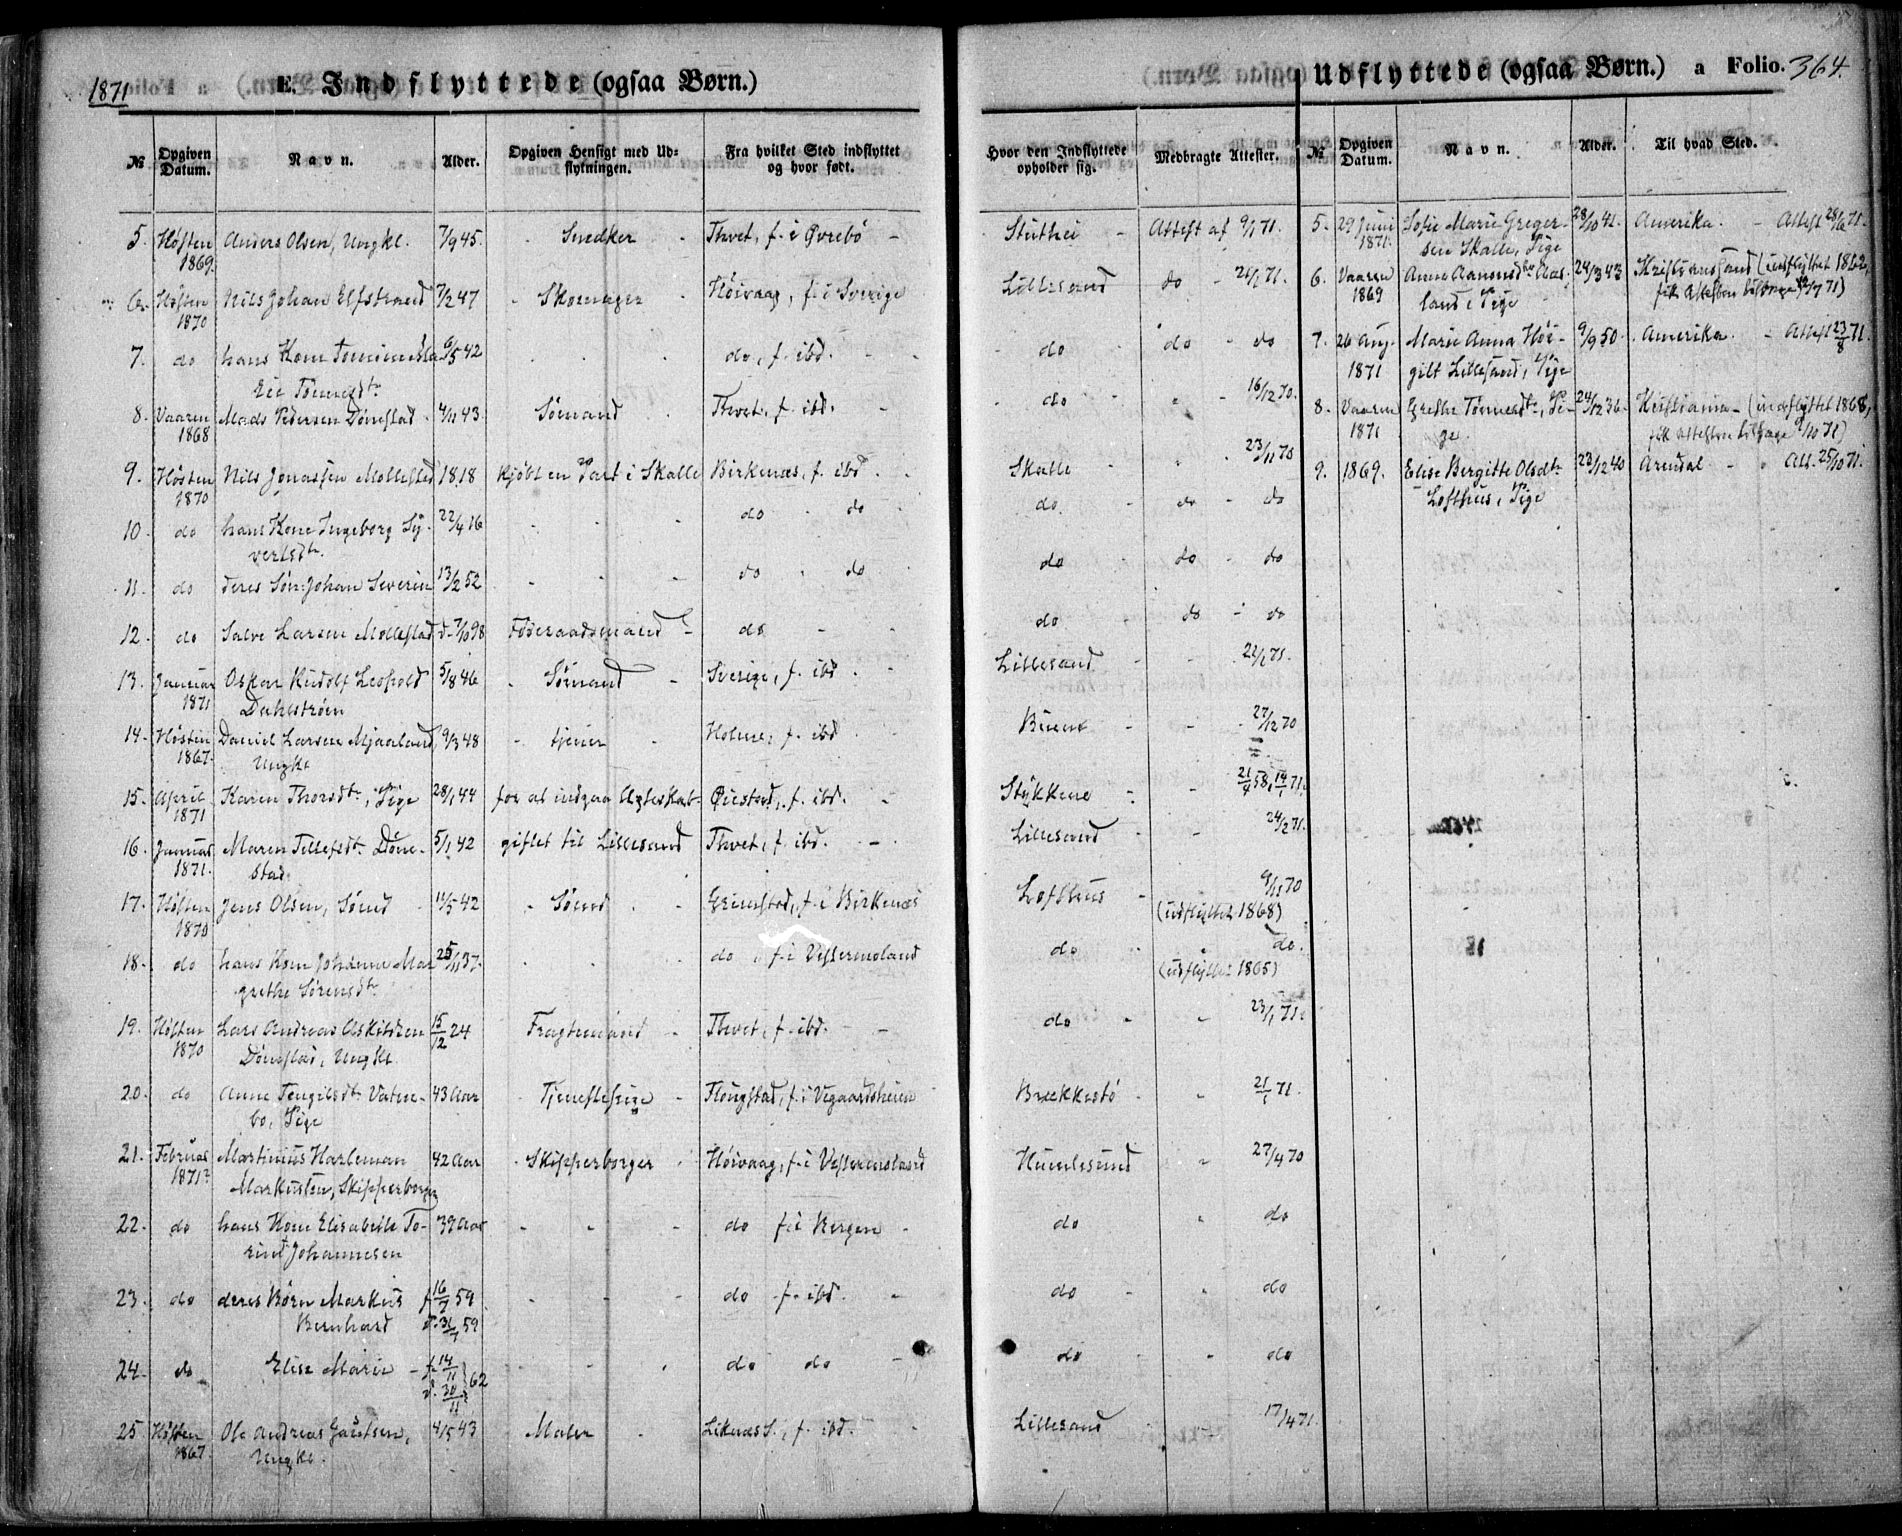 1871
E. Indflyttede (ogsaa Børn.)
№
Opgiven Datum.
Navn.
Alder.
Opgiven Hensigt med Ud-
flytningen.
Fra hvilket Sted indflyttet
og hvor født.
Hvor den Indflyttede
opholder sig.
Medbragte Attester.
5. Høsten Anders Olsen, Ungkl. 7/9 45. Snedker Thvet, f. i Øvrebö Stuthei Attest af 9/1 71.
1869.
6. Høsten Nils Johan Elfstrand 7/2 47 Skomager Høivaag, f. i Sverige Lillesand do 21/1 71.
1870
7. do hans Kone 6/5 42 do, f. ibd. do do do
Tønnesdtr
8. Vaaren Mads Pedersen Dønestad 4/11 43. Sømand Thvet, f. ibd. do 16/12 70.
1868
9. Høsten Nils Jonassen Mollestad 1818 kjøbt en Part i Skalle Birkenæs, f. ibd Skalle 23/11 70
1870
10 do hans Kone Ingeborg Sy- 22/4 16 do do do do do
vertsdtr.
11. do deres Søn Johan Severin 13/2 52 do do do do do
12. do Salve Larsen Mollestad d. 7/10 98 Føderaadsmand do do do do
13. Januar Oskar Rudolf Leopold 5/8 46 Sømand Sverige, f. ibd. Lillesand 21/1 71.
1871 Dahlstrøm
14. Høsten Daniel Larsen Mjaaland, 9/3 48 tjener Holme, f. ibd 27/12 70
1867. Ungkl
15. April Karen Thorsdtr, Pige 28/1 44 for at indgaa Ægteskab Øiestad, f. ibd. Støkkene 21/4 58, 14/1 71.
1871
16. Januar Maren Tellefsdtr Døne- 5/1 42 giftet til Lillesand Thvet, f. ibd. Lillesand 24/2 71.
1871. stad
17. Høsten Jens Olsen, Sømd 11/5 42 Sømd Grimstad, f. i Birkenæs Lofthus 9/11 70
1870 (udflyttet 1868)
18. do hans Kone Johanne Mar 25/11 37. do, f. i Vestermoland do do.
grethe Sørensdtr (udflyttet 1865)
19. Høsten Lars Andreas Askildsen 15/12 24 Fragtemand Thvet, f. ibd. do 23/1 71.
1870 Dønestad, Ungkl.
20. do Anne Tengilsdtr Vatne- 43 Aar Tjenestepige f. i Vegaardsheien Brækkestø 21/1 71.
bo, Pige
21. Februar Martinius Harleman 42 Aar Skipperborger Høivaag, f. i Vestermoland Humlesund 27/4 70
1871? Markussen, Skipperborger
22. do hans Kone Elisabeth To- 39 Aar do f. i Bergen do do
rine Johannesen
23. do deres Børn Markus f. 16/7 59 do f. ibd. do do
Bernhard d. 31/7 59
24. do Elise Marie f. 14/11 62 do do do do
d. 30/11
25. Høsten Ole Andreas Gautsen, 4/5 43 Maler f. ibd. Lillesand 17/4 71.
1867. Ungkl.
Udflyttede (ogsaa Børn.) a Folio. 364.
№
Opgiven Datum.
Navn.
Alder.
Til hvad Sted.
5. 29 Juni Sofie Marie Greger- 28/10 41. Amerika. Attest 28/6 71.
1871. sen Skalle, Pige
6. Vaaren Anne Aanonsdtr Aas- 24/3 43 Kristianssand (udflyttet 1862,
1869 land, Pige fik Attesten 71)
7. 26 Aug. Marie Anna Høi- 9/9 50. Amerika. Attest 23/8 71.
1871 gilt Lillesand, Pige
8. Vaaren Grethe Tønnesdtr, Pi- 24/12 36. Kristiania (indflyttet 1868,
1871 ge fik Attesten tilbage 9/10 71)
9. 1869. Elise Bergitte Olsdtr 23/12 40 Arendal Att. 25/10 71.
Lofthus, Pige